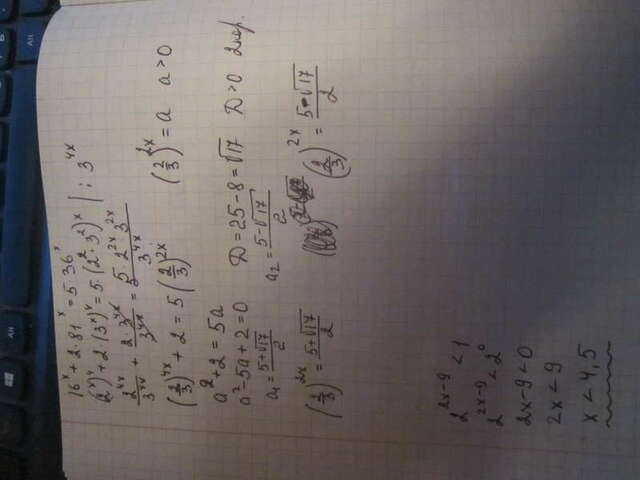 16^x + 2·81^x = 5·36^x
(2^x)^4 + 2·(3^x)^4 = 5·(2^2·3^2)^x | : 3^{4x}
2^{4x}/3^{4x} + 2·3^{4x}/3^{4x} = 5·2^{2x}3^{2x}/3^{4x}
(2/3)^{4x} + 2 = 5(2/3)^{2x} (2/3)^{2x} = a a>0
a^2+2 = 5a
a^2-5a+2=0 D=25-8=√17 D>0 2кор.
a_1 = (5+√17)/2 a_2 = (5-√17)/2
(2/3)^{2x} = (5+√17)/2 (2/3)^{2x} = (5-√17)/2
2^{2x-9} < 1
2^{2x-9} < 2^0
2x-9<0
2x<9
x<4,5